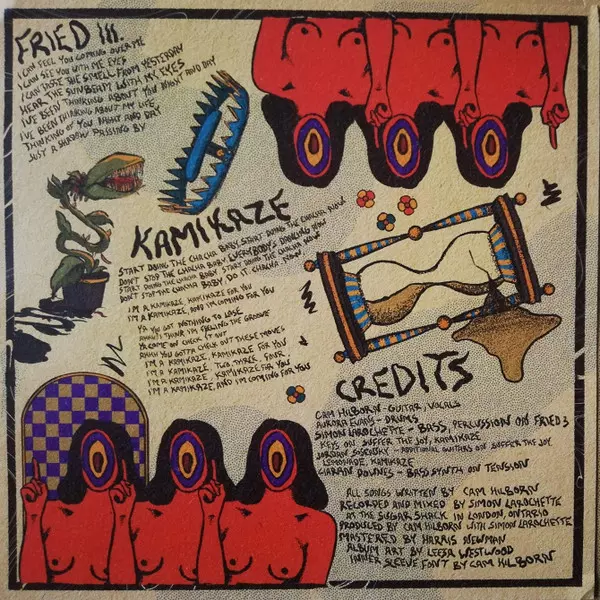 FRIED III.
I CAN FEEL YOU COMING OVER ME
I CAN SEE YOU WITH ME EYES
I CAN TASTE THE SMELL FROM YESTERDAY
HEAR THE SUNBEAM WITH MY EYES
I'VE BEEN THINKING ABOUT YOU NIGHT AND DAY
I'VE BEEN THINKING ABOUT MY LIFE
THINKING OF YOU NIGHT AND DAY
JUST A SHADOW PASSING BY
KAMIKAZE
START DOING THE CHACHA BABY START DOING THE CHACHA NOW
DON'T STOP THE CHACHA BABY EVERYBODY'S DANCING NOW
START DOING THE CHACHA BABY START DOING THE CHACHA NOW
DON'T STOP THE CHACHA BABY DO IT CHACHA NOW
I'M A KAMIKAZE, KAMIKAZE FOR YOU
I'M A KAMIKAZE, AND I'M COMING FOR YOU
YA YOU GOT NOTHING TO LOSE
AHHH I THINK I'M FEELING THE GROOVE
YA COME ON CHECK IT OUT
AHHH YOU GOTTA CHECK OUT THESE MOVES
I'M A KAMIKAZE, KAMIKAZE FOR YOU
I'M A KAMIKAZE, TWO, THREE, FOUR,
I'M A KAMIKAZE, KAMIKAZE FOR YOU
I'M A KAMIKAZE, AND I'M COMING FOR YOU
CREDITS
CAM HILBORN - GUITAR, VOCALS
AURORA EVANS - DRUMS
SIMON LAROCHETTE - BASS, PERCUSSION ON FRIED 3
KEYS ON SUFFER THE JOY, KAMIKAZE
JORDAN SOSENSKY - ADDITIONAL GUITARS ON SUFFER THE JOY
LEMONADE, KAMIKAZE
CIARAN DOWNES - BASS SYNTH ON TENSION
ALL SONGS WRITTEN BY CAM HILBORN
RECORDED AND MIXED BY SIMON LAROCHETTE
AT THE SUGAR SHACK IN LONDON, ONTARIO
PRODUCED BY CAM HILBORN WITH SIMON LAROCHETTE
MASTERED BY HARRIS NEWMAN
ALBUM ART BY LEESA WESTWOOD
INNER SLEEVE FONT BY CAM HILBORN